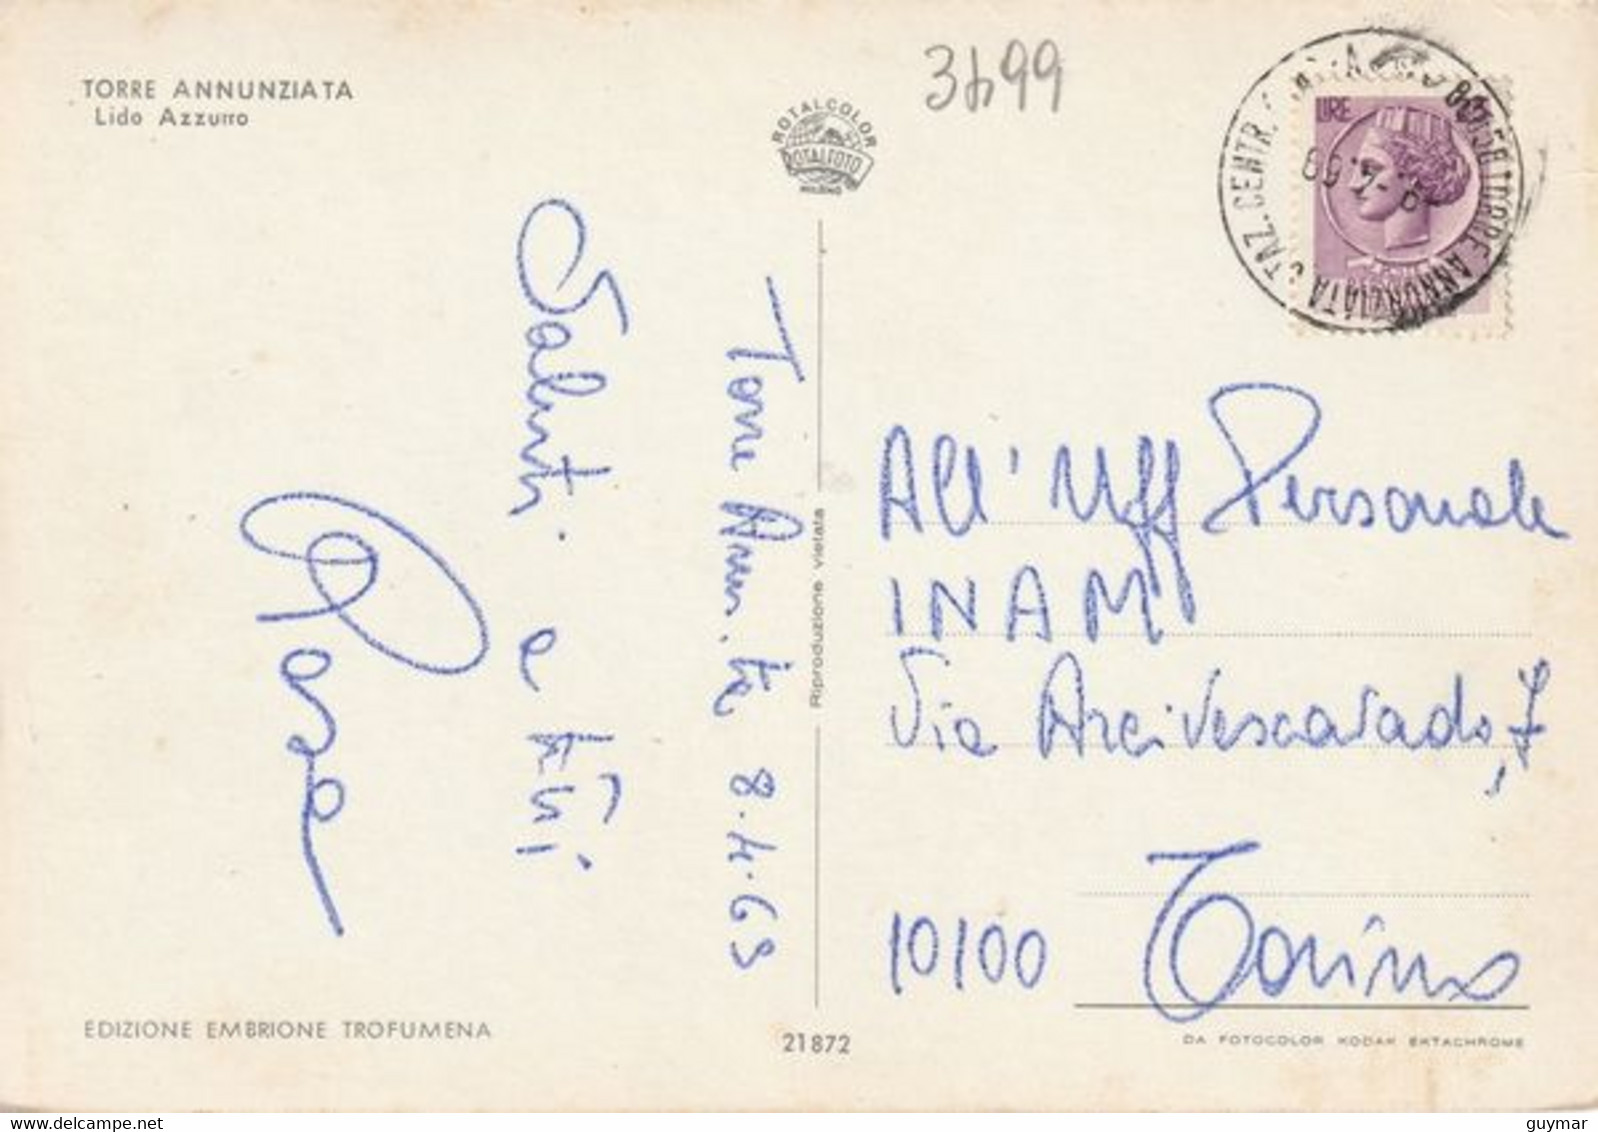 TORRE ANNUNZIATA
Lido Azzurro
3499
ROTALCOLOR
ROTALFOTO
MILANO
LIRE
TORRE ANNUNZIATA
CENTR.
Saluti. a tutti
Rosa
Torre Ann.ta 8.4.69
Riproduzione vietata
All' Uff Personale
INAM
Via Arcivescovado, 7
10100 Torino
EDIZIONE EMBRIONE TROFUMENA
21872
DA FOTOCOLOR KODAK EKTACHROME
www.delcampe.net
guymar